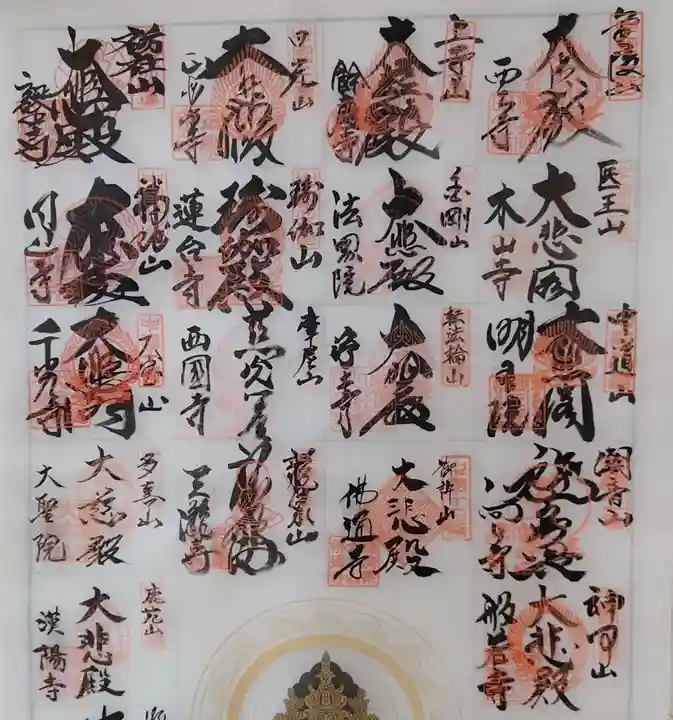 大悲殿
西大寺
上寺山
大悲殿
餘慶寺
日光山
大悲殿
正楽寺
大悲殿
誕生寺
医王山
大悲閣
木山寺
金剛山
大悲殿
法界院
瑜伽山
瑜伽殿
蓮台寺
大悲殿
円通寺
中道山
大悲閣
明王院
転法輪山
大悲殿
浄土寺
摩尼山
西國寺
大宝山
大悲閣
千光寺
觀音山
向上寺
御許山
大悲殿
佛通寺
龍泉山
三瀧寺
多喜山
大慈殿
大聖院
神峯山
大悲殿
般若寺
鹿苑山
大悲殿
漢陽寺